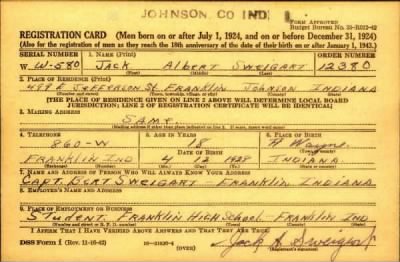 JOHNSON, CO IND.
FORM APPROVED
Budget Bureau No. 33-R012-42
REGISTRATION CARD (Men born on or after July 1, 1924, and on or before December 31, 1924)
(Also for the registration of men as they reach the 18th anniversary of the date of their birth on or after January 1, 1943.)
SERIAL NUMBER 1. NAME (Print) ORDER NUMBER
W W-580 JACK ALBERT SWEIGART 12380
(First) (Middle) (Last)
2. PLACE OF RESIDENCE (Print)
499 E JEFFERSON ST. FRANKLIN JOHNSON INDIANA
(Number and street) (Town, township, village, or city) (County) (State)
[THE PLACE OF RESIDENCE GIVEN ON LINE 2 ABOVE WILL DETERMINE LOCAL BOARD
JURISDICTION; LINE 2 OF REGISTRATION CERTIFICATE WILL BE IDENTICAL]
3. MAILING ADDRESS
SAME
(Mailing address if other than place indicated on line 2. If same, insert word same)
4. TELEPHONE 5. AGE IN YEARS 6. PLACE OF BIRTH
860-W 18 Ft Wayne
FRANKLIN IND 4 12 INDIANA
7. NAME AND ADDRESS OF PERSON WHO WILL ALWAYS KNOW YOUR ADDRESS
CAPT. BERT SWEIGART - FRANKLIN INDIANA
8.
PLACE OF EMPLOYMENT OR BUSINESS
STUDENT. FRANKLIN HIGH SCHOOL - FRANKLIN IND
I AFFIRM THAT I HAVE VERIFIED ABOVE ANSWERS AND THAT THEY ARE TRUE.
DSS Form 1 (Rev. 11-16-42) (OVER) Jack A Sweigart